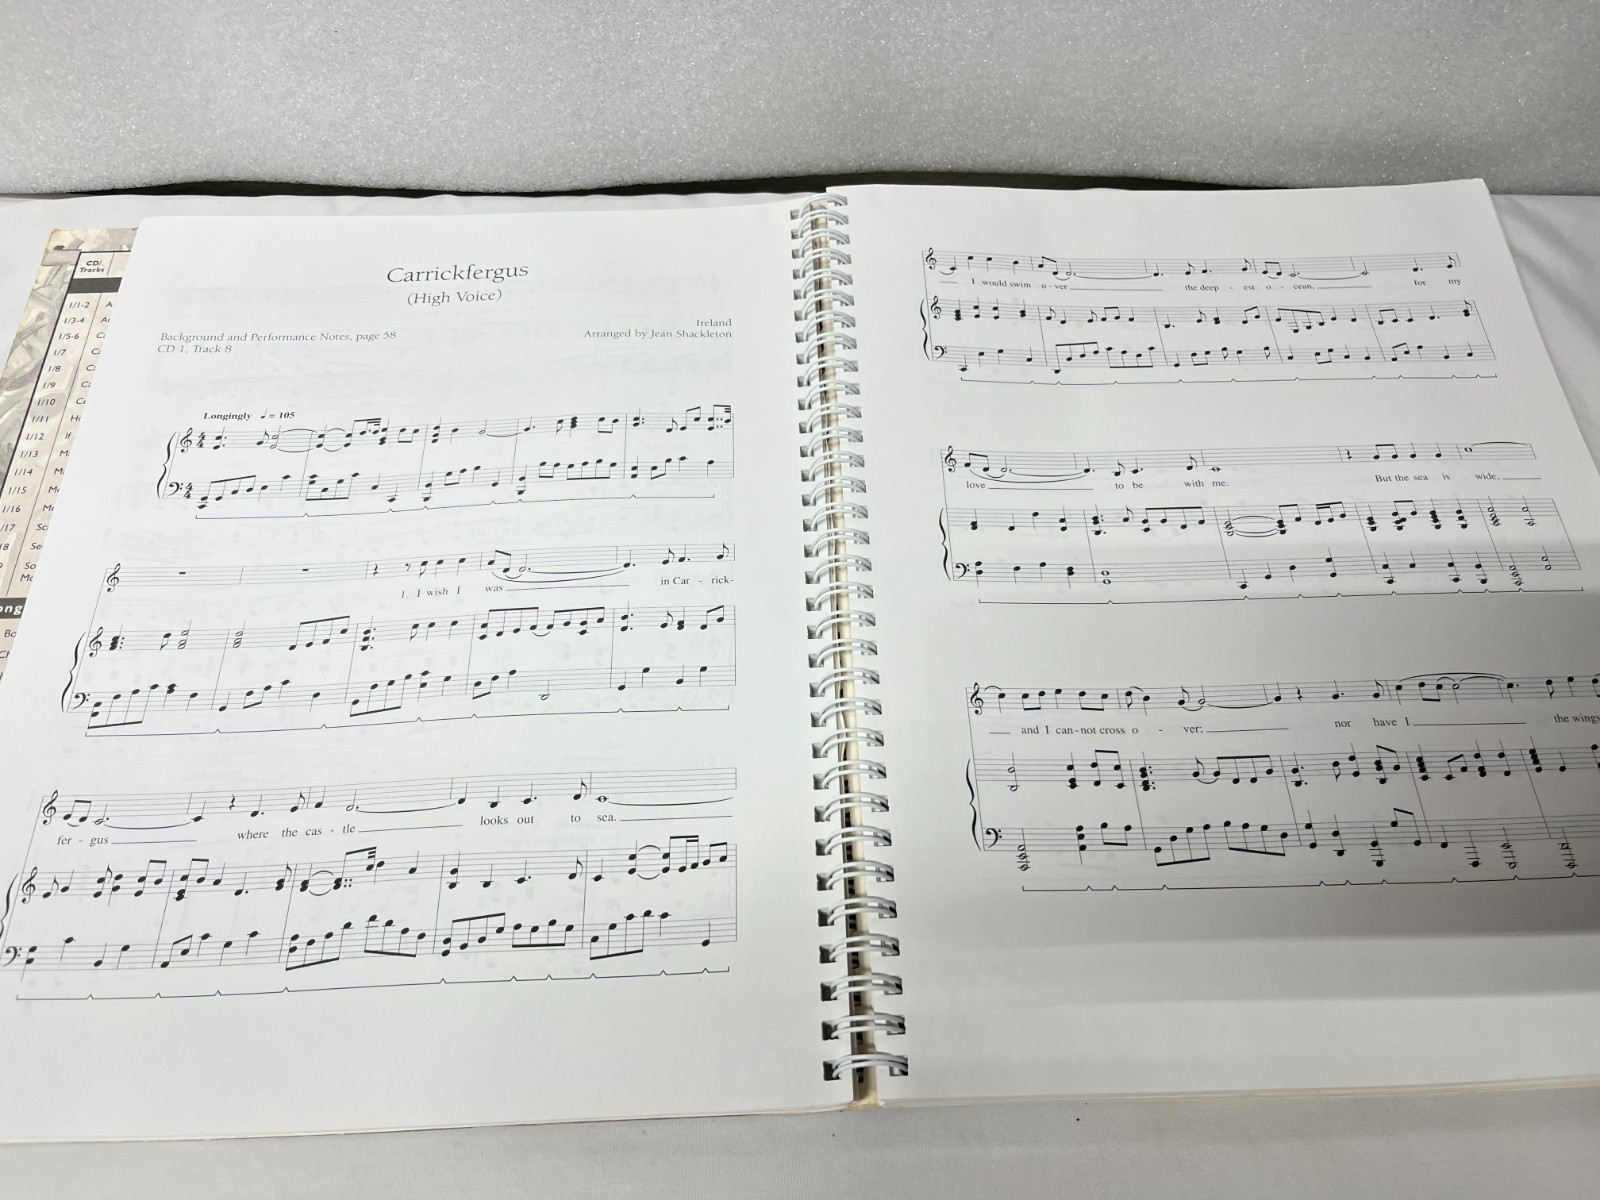 CD/
Tracks
1/1-2 A
1/3-4
1/5-6
1/7
1/8
1/9
1/10
1/11
1/12 If
1/13
1/14
1/15
1/16
Carrickfergus
(High Voice)
Background and Performance Notes, page 58
CD 1, Track 8
Ireland
Arranged by Jean Shackleton
Longingly ♩ = 105
1. I wish I was in Car - rick-
fer - gus where the cas - tle looks out to sea.
I would swim o - ver the deep - est o - cean, for my
love to be with me. But the sea is wide,
and I can - not cross o - ver; nor have I the wings